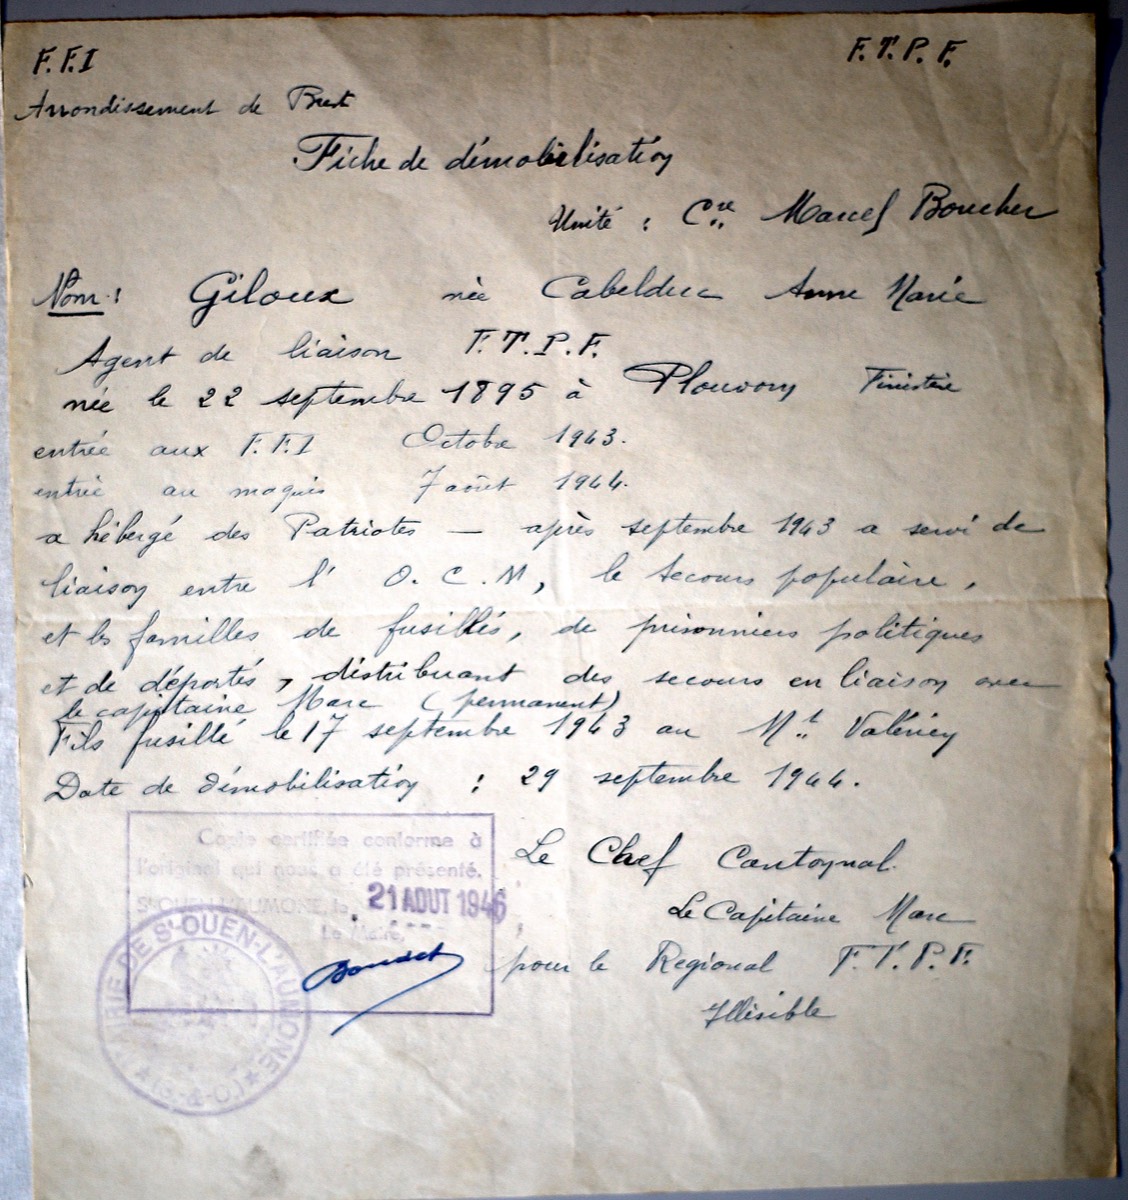 F.F.I
F.T.P.F.
Arrondissement de Brest
Fiche de démobilisation
Unité : Cie Marcel Boucher
Nom : Giloux née Cabelduc Anne Marie
Agent de liaison F.T.P.F.
née le 22 septembre 1895 à Plouvorn Finistère
entrée aux F.F.I Octobre 1943.
entrée au maquis 7 août 1944.
a hébergé des Patriotes — après septembre 1943 a servi de
liaison entre l' O.C.M, le secours populaire,
et les familles de fusillés, de prisonniers politiques
et de déportés, distribuant des secours en liaison avec
le capitaine Marc (permanent)
Fils fusillé le 17 septembre 1943 au Mt Valérien
Date de démobilisation : 29 septembre 1944.
Copie certifiée conforme à
l'original qui nous a été présenté.
St-OUEN-L'AUMONE, le 21 AOUT 1946
Le Maire,
MAIRIE DE St-OUEN-L'AUMONE ★ (S.-&-O.) ★
Le Chef Cantonnal.
Le Capitaine Marc
pour le Regional F.T.P.F.
Illisible